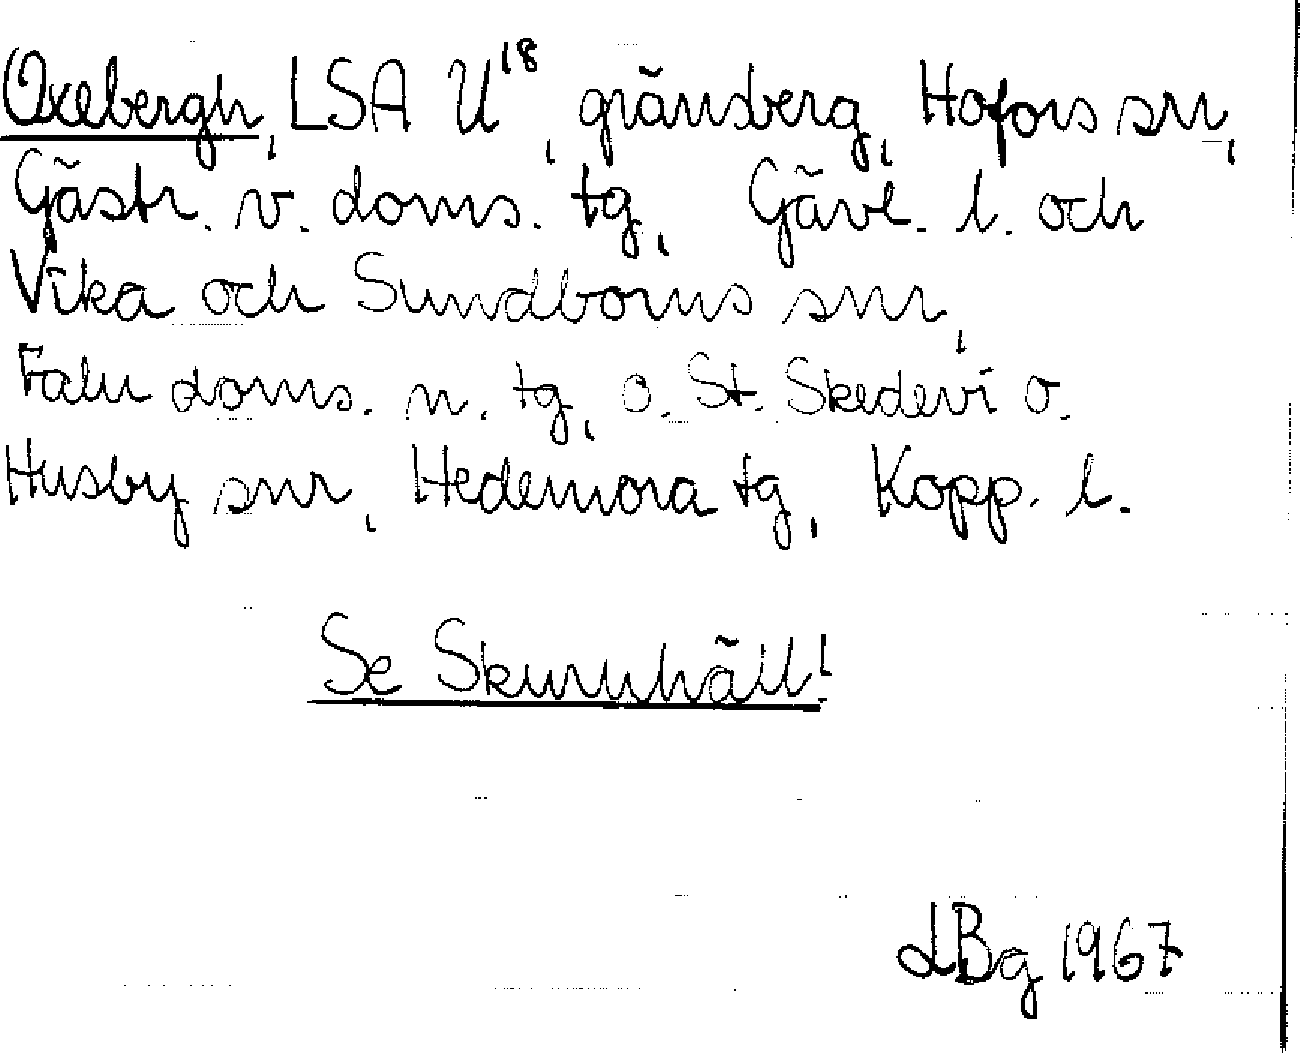 Oxebergh, LSA U18, gränsberg, Hofors sn,
Gästr. v. doms. tg, Gävl. l. och
Vika och Sundborns snr,
Falu doms. n. tg, o. St. Skedevi o.
Husby snr, Hedemora tg, Kopp. l.
Se Skuruhäll!
LBg 1967